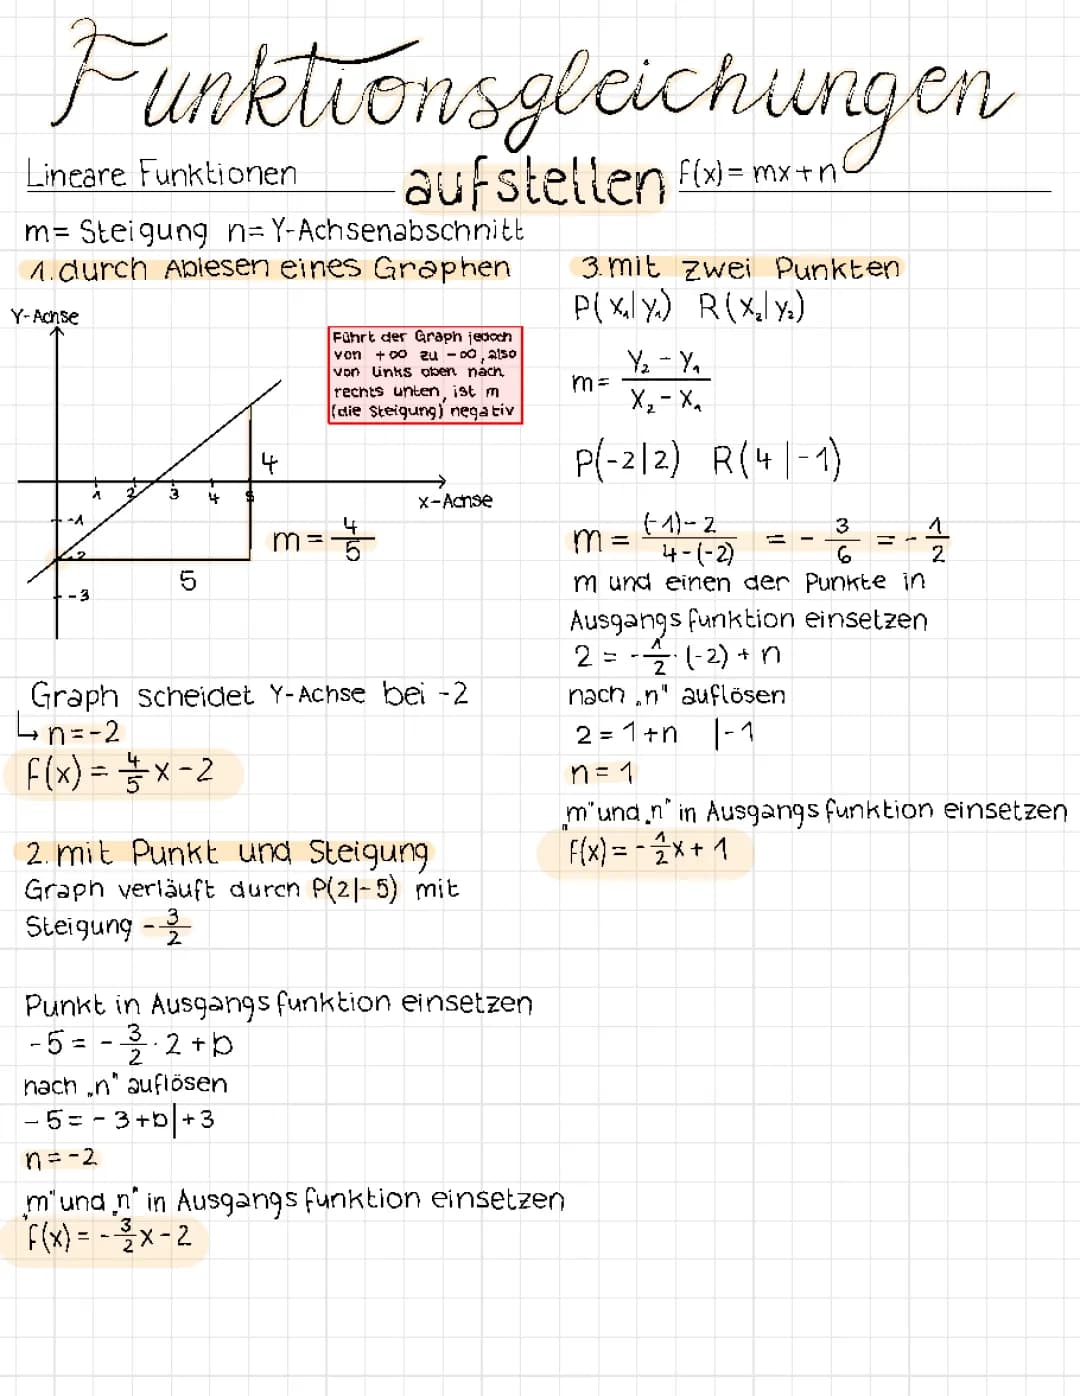 Funktionsgleichungen
aufstellen
Lineare Funktionen
f(x) = mx + n
m = Steigung n = Y-Achsenabschnitt
1. durch Ablesen eines Graphen
Y-Achse
Führt der Graph jedoch
von +∞ zu -∞, also
von links oben nach
rechts unten, ist m
(die Steigung) negativ
4
1 2 3 4 5
X-Achse
-1
m = 4/5
-2
5
-3
Graph scheidet Y-Achse bei -2
↳ n = -2
f(x) = 4/5 x - 2
2. mit Punkt und Steigung
Graph verläuft durch P(2|-5) mit
Steigung -3/2
Punkt in Ausgangsfunktion einsetzen
-5 = -3/2 · 2 + b
nach „n" auflösen
-5 = -3 + b | +3
n = -2
„m" und „n" in Ausgangsfunktion einsetzen
f(x) = -3/2 x - 2
3. mit zwei Punkten
P(x₁|y₁) R(x₂|y₂)
m = Y₂ - Y₁ / X₂ - X₁
P(-2|2) R(4|-1)
m = (-1) - 2 / 4 - (-2) = -3/6 = -1/2
m und einen der Punkte in
Ausgangsfunktion einsetzen
2 = -1/2 · (-2) + n
nach „n" auflösen
2 = 1 + n | -1
n = 1
„m" und „n" in Ausgangsfunktion einsetzen
f(x) = -1/2 x + 1